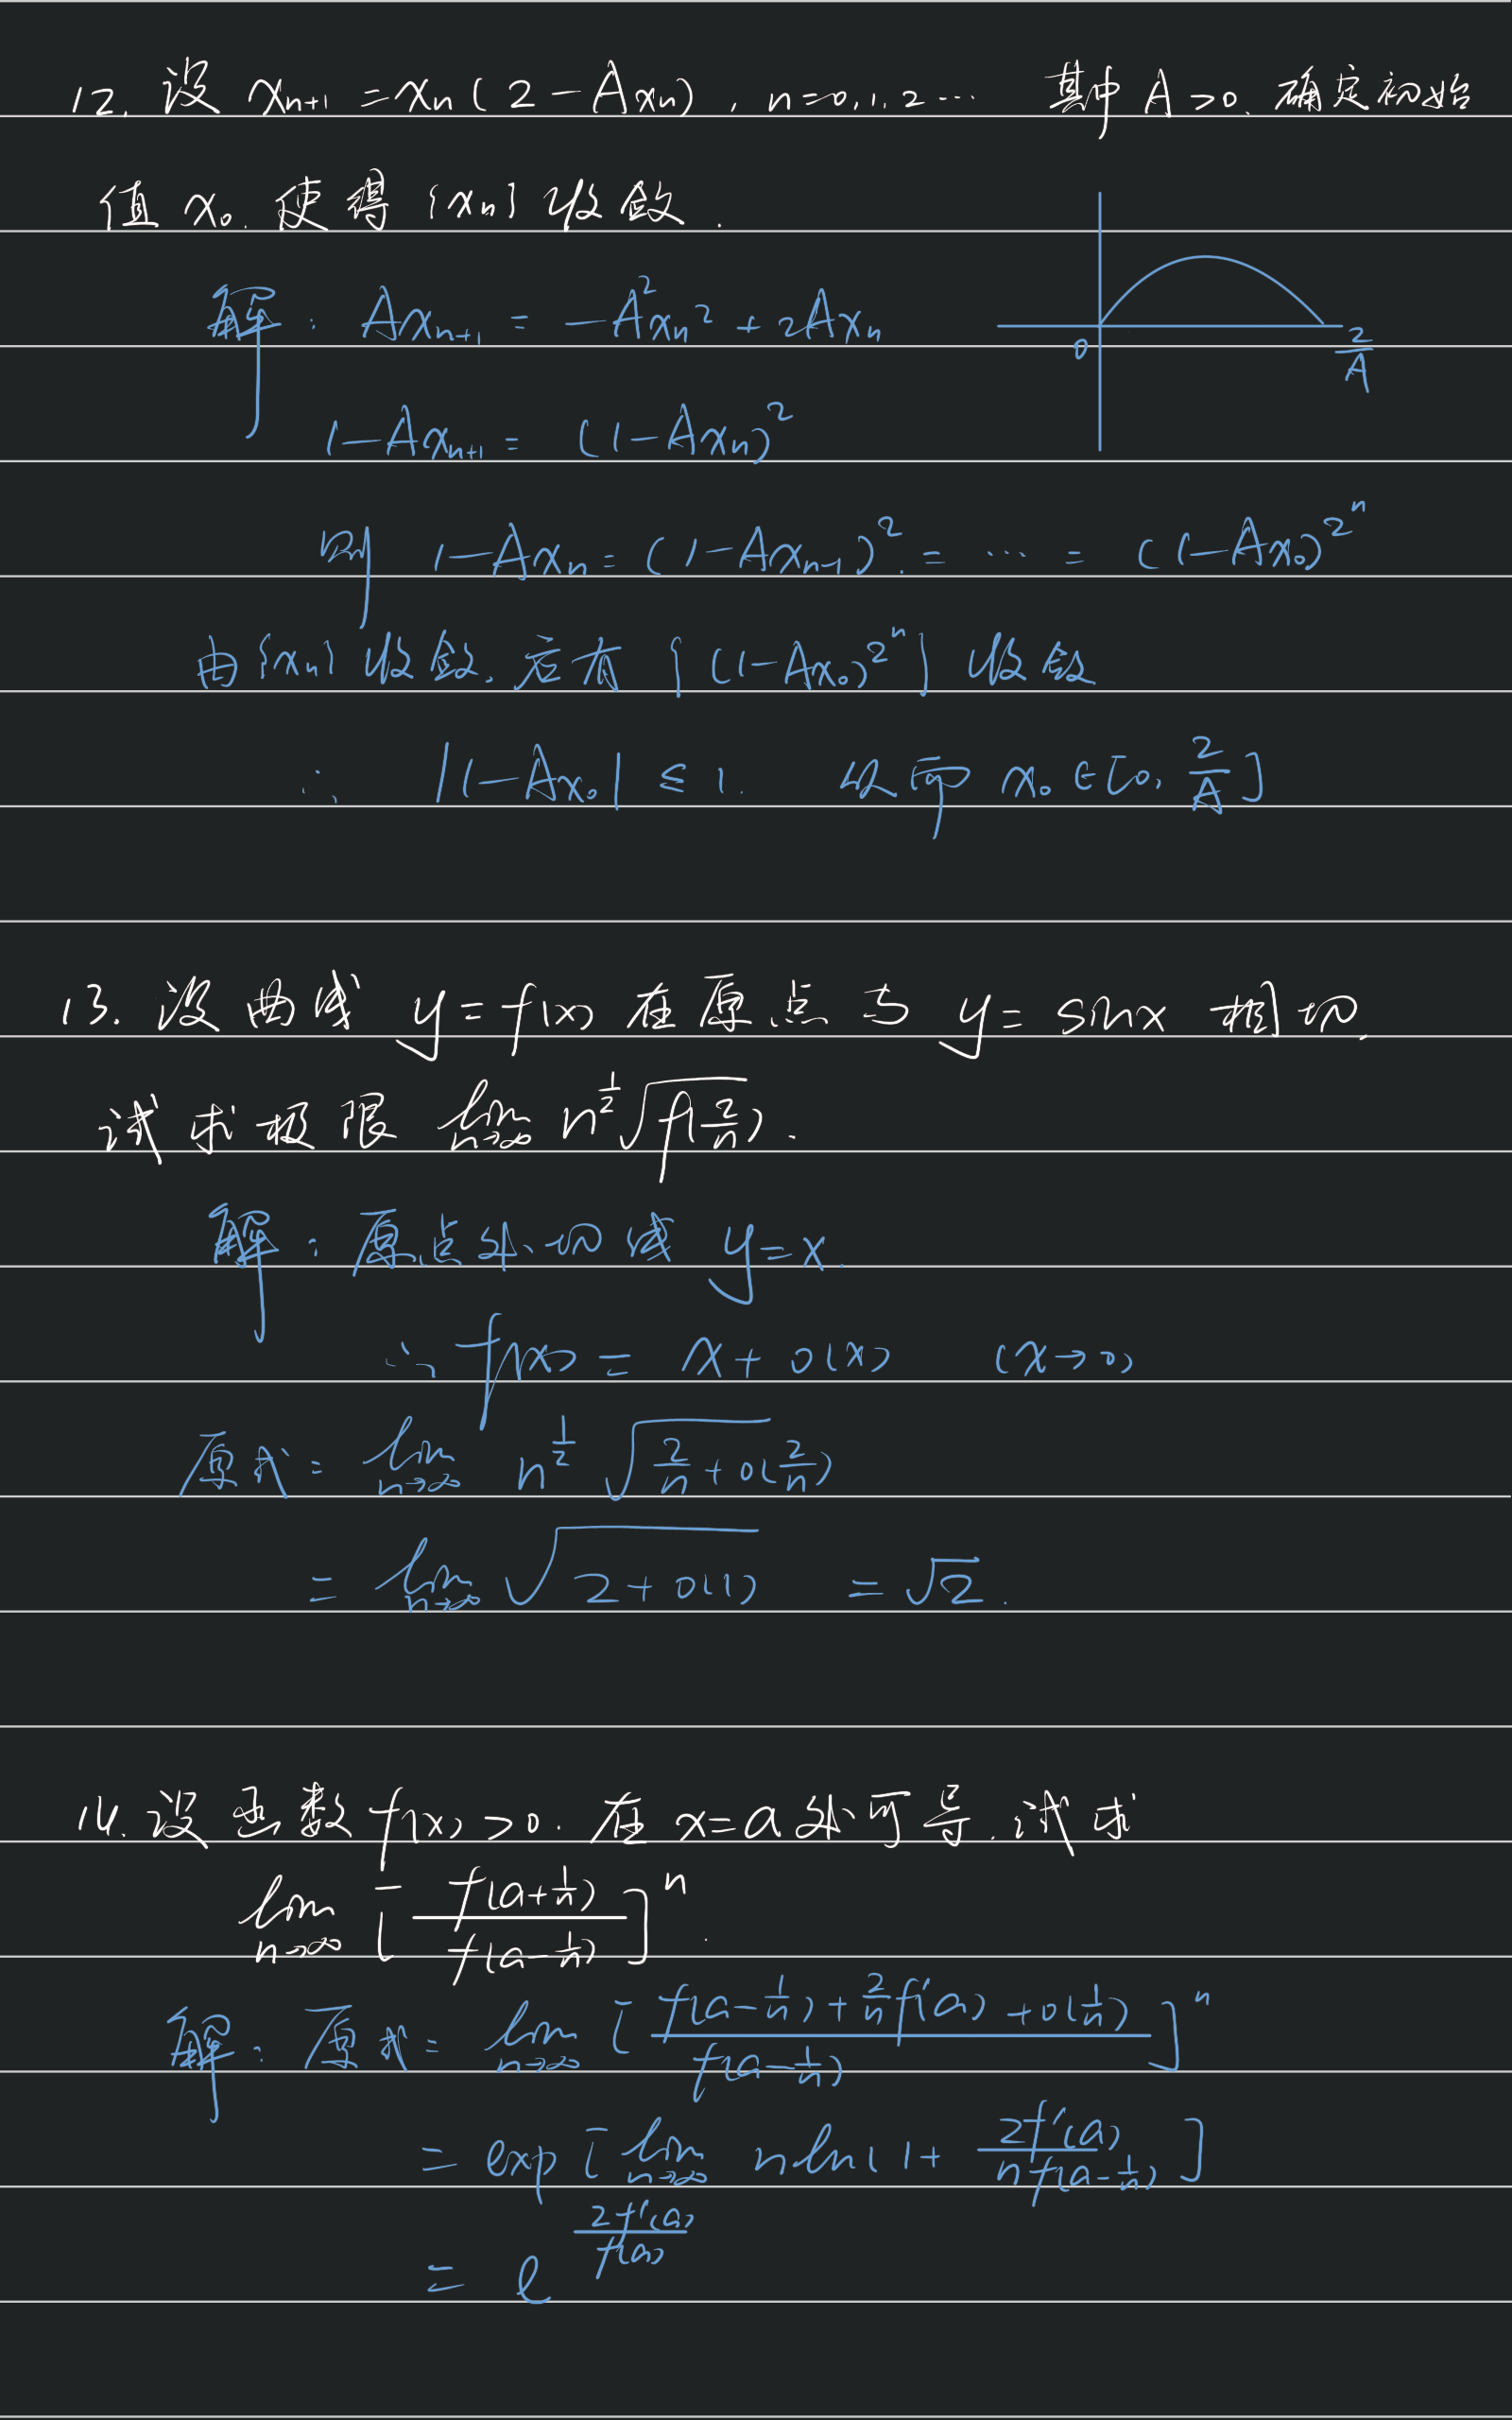 12. 设 xₙ₊₁ = xₙ(2 - Axₙ), n=0,1,2… 其中 A>0. 确定初始
值 x₀. 使得 {xₙ} 收敛.
解: Axₙ₊₁ = -A²xₙ² + 2Axₙ
0 2/A
1-Axₙ₊₁ = (1-Axₙ)²
则 1-Axₙ = (1-Axₙ₋₁)² = … = (1-Ax₀)^{2^n}
由{xₙ}收敛, 应有 {(1-Ax₀)^{2^n}} 收敛
∴ |1-Ax₀| ≤ 1. 从而 x₀∈[0, 2/A]
13. 设曲线 y=f(x) 在原点与 y=sinx 相切.
试求极限 lim_{n→∞} n^{1/2}√(f(2/n)).
解: 原点处切线 y=x.
∴ f(x) = x + o(x) (x→0)
原式 = lim_{n→∞} n^{1/2} √(2/n + o(2/n))
= lim_{n→∞} √(2+o(1)) = √2.
14. 设函数 f(x)>0. 在 x=a 处可导. 试求
lim_{n→∞} [f(a+1/n)/f(a-1/n)]^n.
解: 原式 = lim_{n→∞} [(f(a-1/n) + 2/n f'(a) + o(1/n))/f(a-1/n)]^n
= exp[lim_{n→∞} n ln(1 + 2f'(a)/(nf(a-1/n))]
= e^{2f'(a)/f(a)}